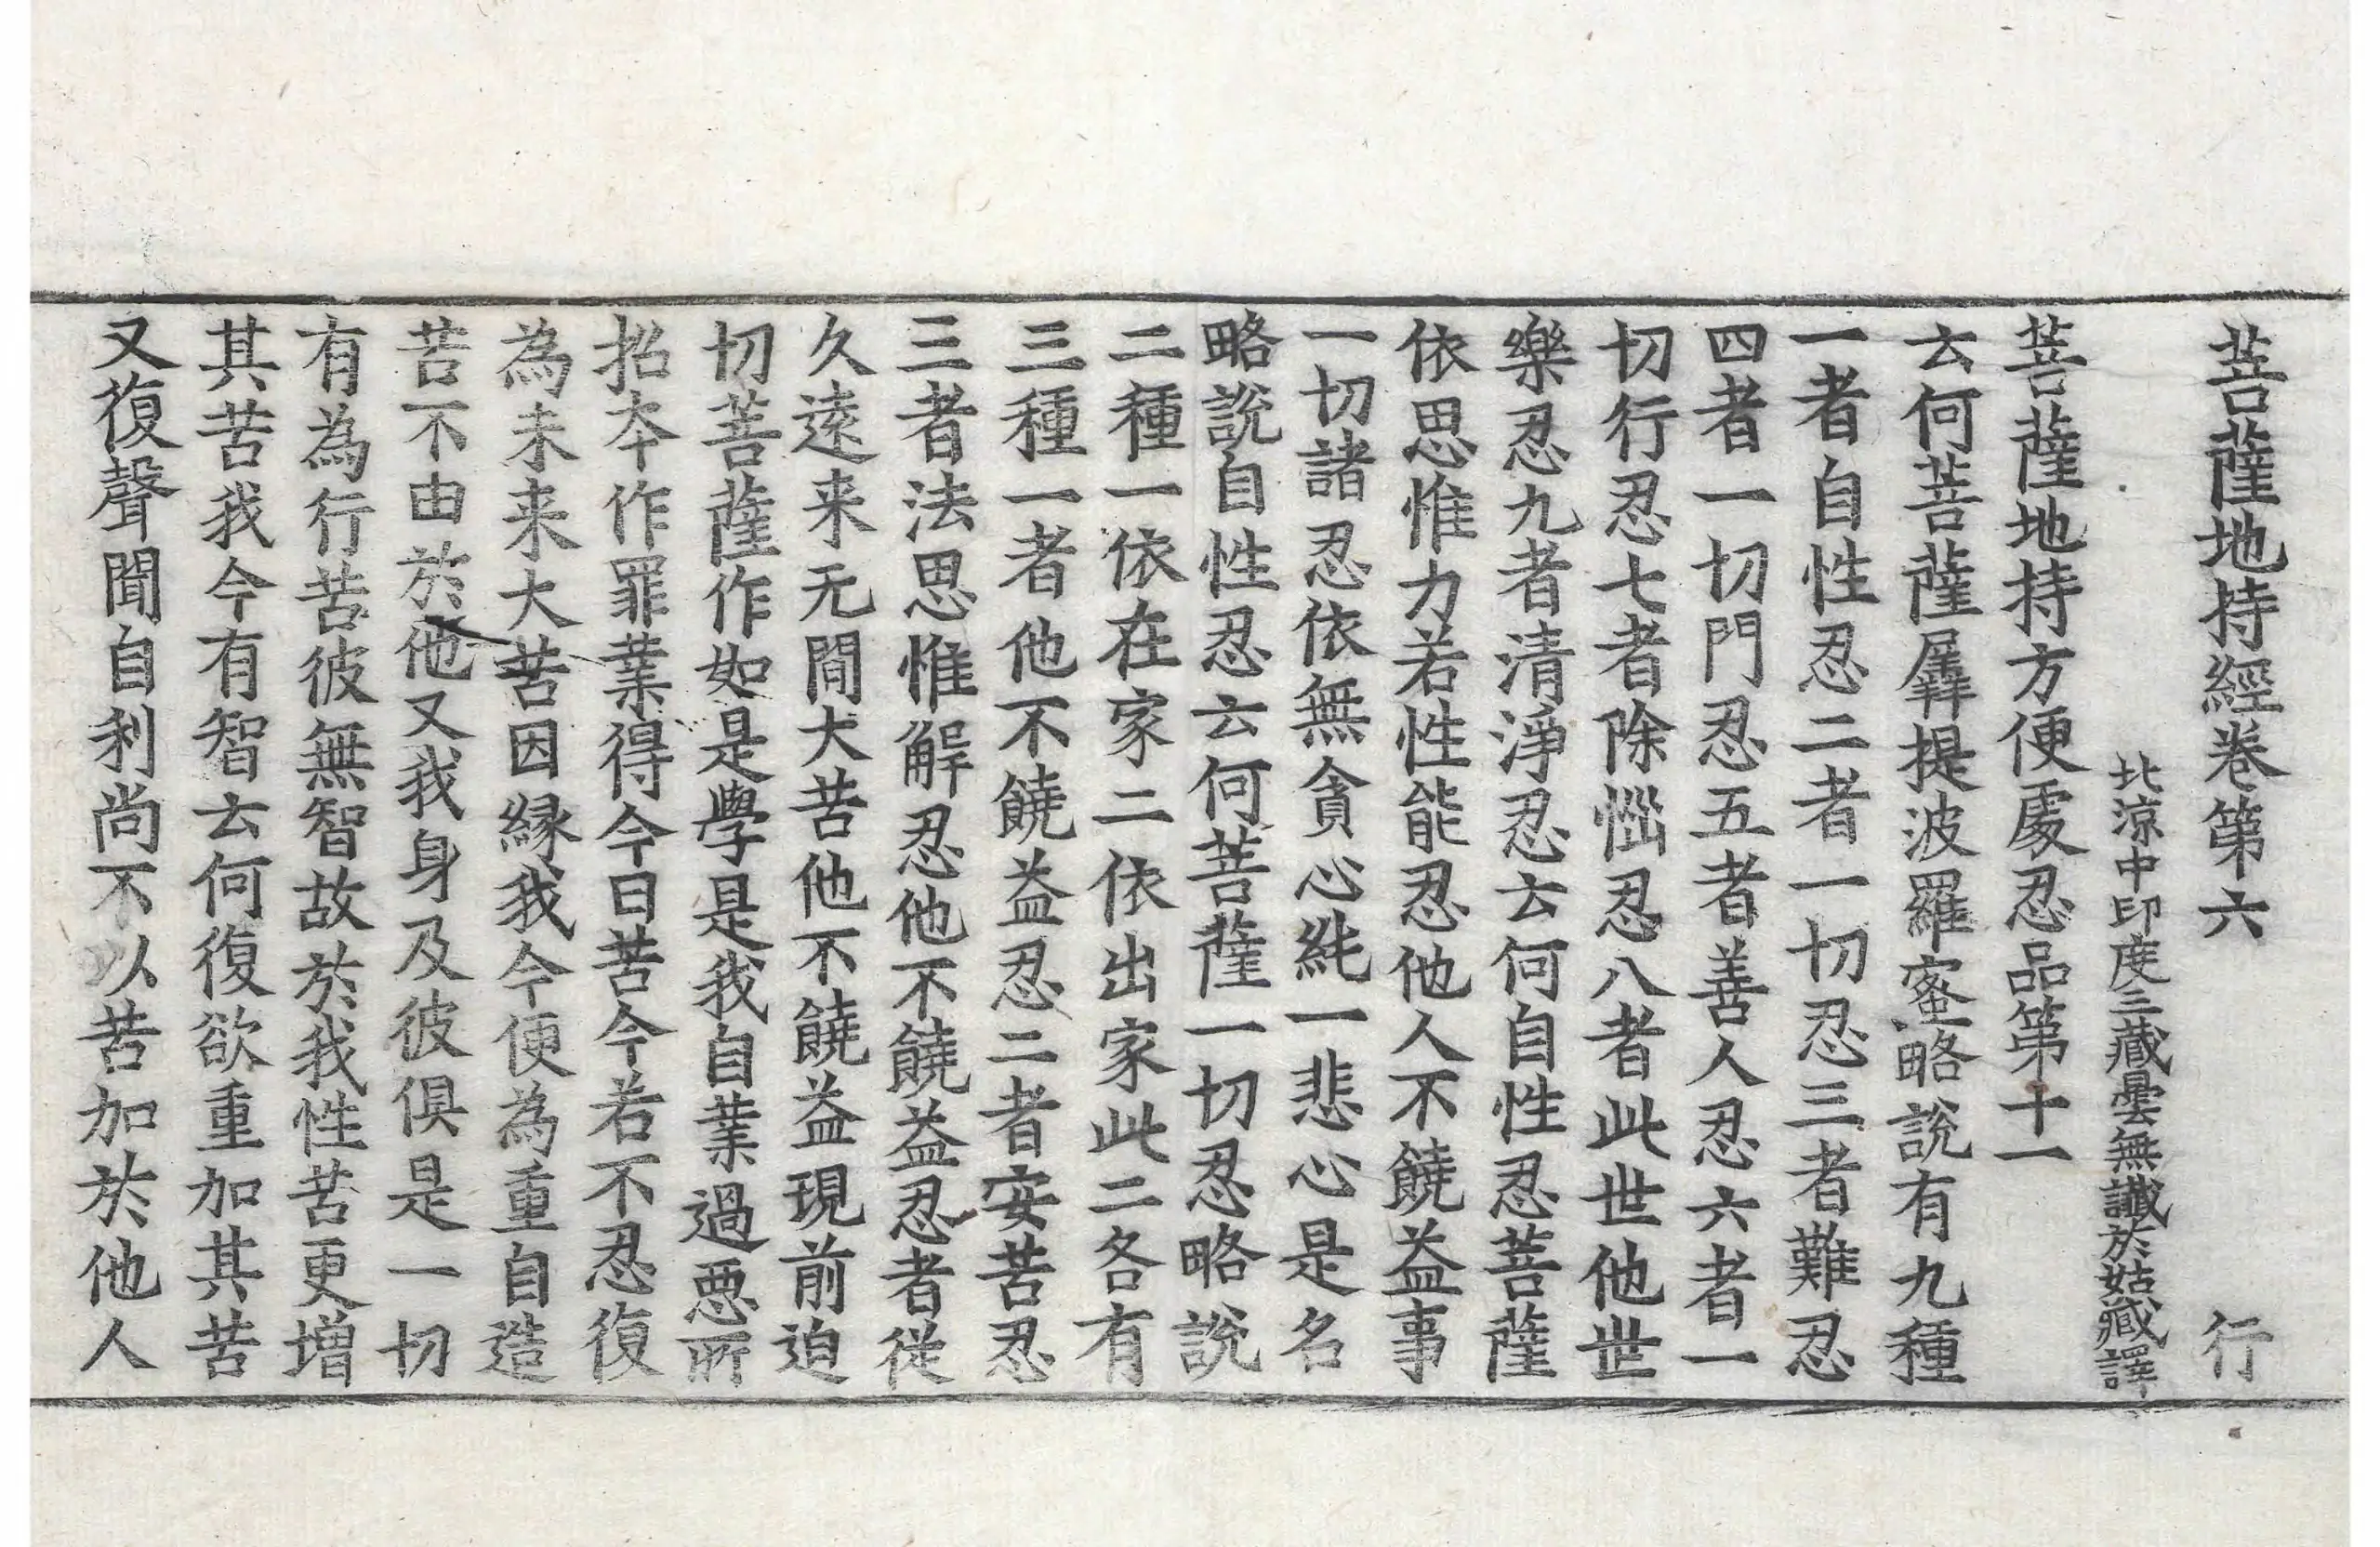 菩薩地持經卷第六 行
北涼中印度三藏曇無讖於姑臧譯
菩薩地持方便處忍品第十一
云何菩薩羼提波羅蜜略說有九種
一者自性忍二者一切忍三者難忍
四者一切門忍五者善人忍六者一
切行忍七者除惱忍八者此世他世
樂忍九者清淨忍云何自性忍菩薩
依思惟力若性能忍他人不饒益事
一切諸忍依無貪心純一悲心是名
略說自性忍云何菩薩一切忍略說
二種一依在家二依出家此二各有
三種一者他不饒益忍二者安苦忍
三者法思惟解忍他不饒益忍者從
久遠来无間大苦他不饒益現前迫
切菩薩作如是學是我自業過悪所
招夲作罪業得今日苦今若不忍復
為未来大苦因縁我今便為重自造
苦不由於他又我身及彼俱是一切
有為行苦彼無智故於我性苦更增
其苦我今有智云何復欲重加其苦
又復聲聞自利尚不以苦加於他人